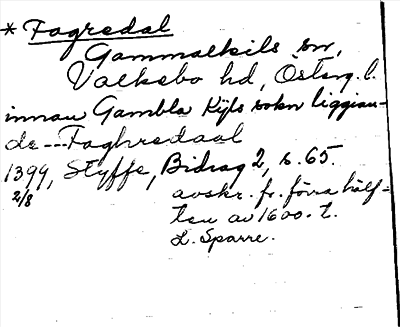 * Fagredal
Gammalkils sn,
Valkebo hd, Österg. l.
innan Gambla Kijls sokn liggian-
de --- Faghredaal
1399, Styffe, Bidrag 2, s. 65.
2/8 avskr. fr. förra hälf-
ten av 1600-t.
L. Sparre.